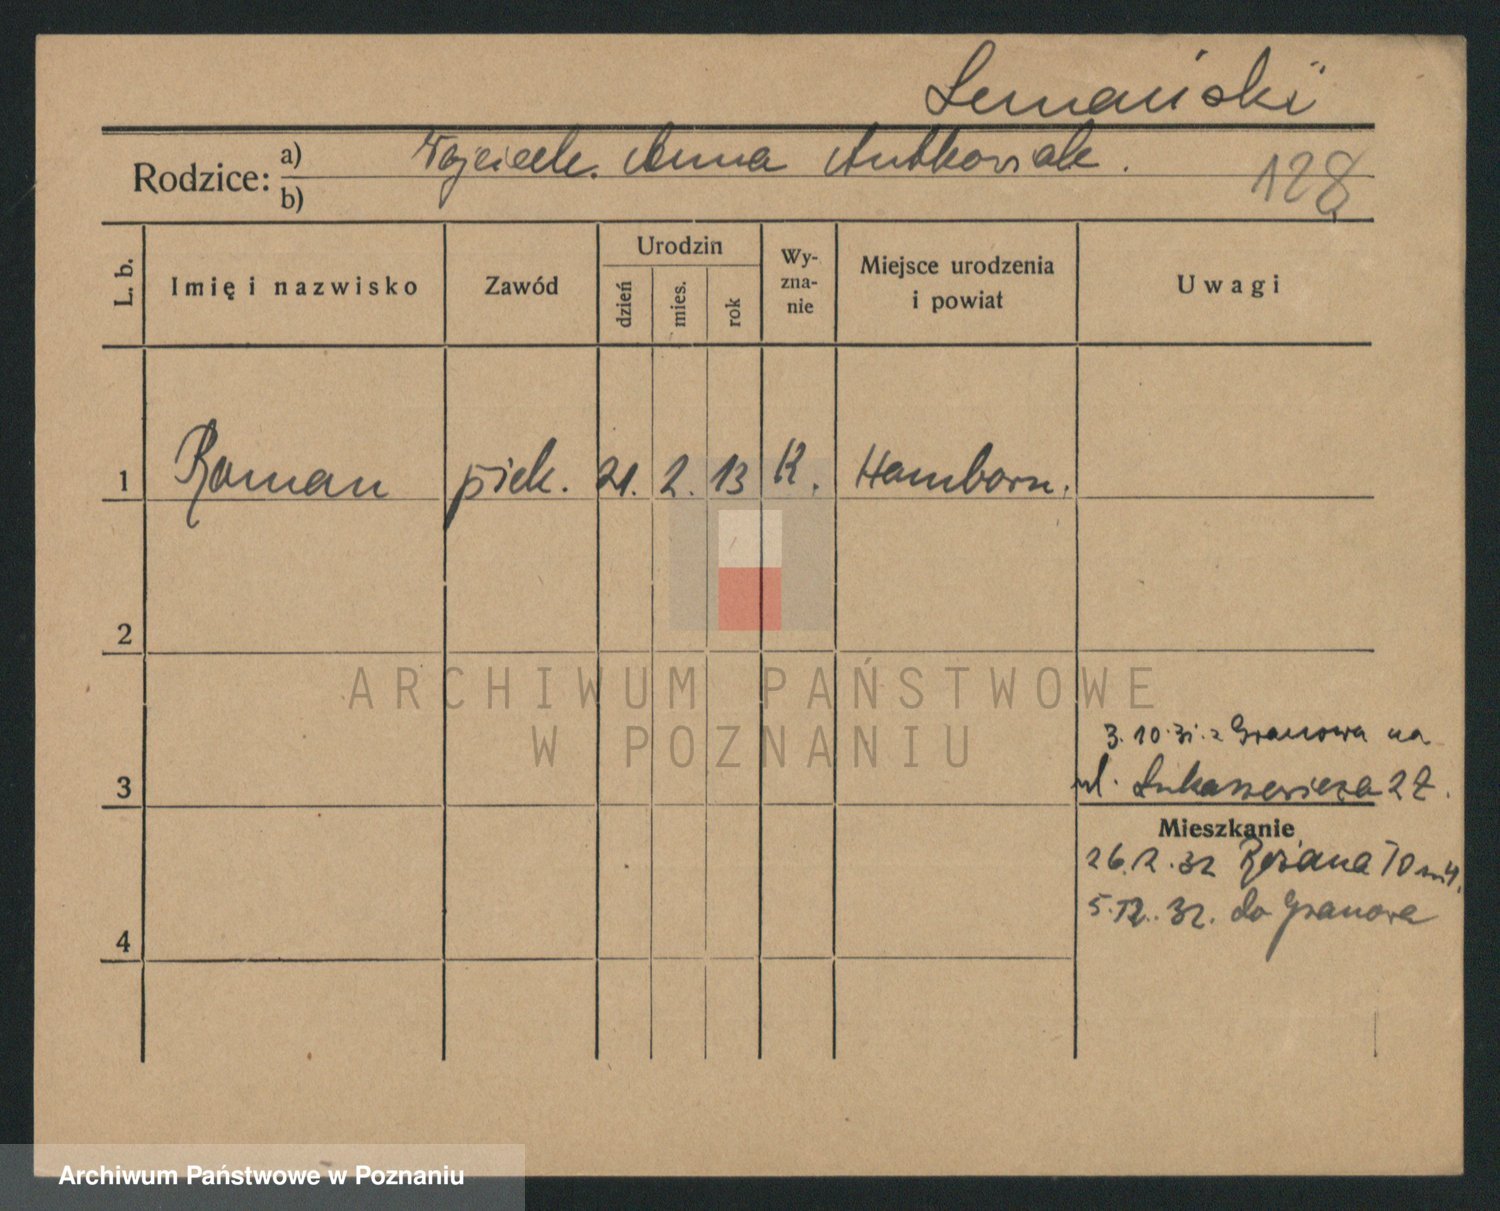 Lemański
Rodzice: a) Wojciech. Anna Antkowiak.
b)
128
L. b. Imię i nazwisko Zawód Urodzin dzień mies. rok Wy-zna-nie Miejsce urodzenia i powiat Uwagi
1 Roman piek. 21. 2. 13 K. Hamborn.
2
ARCHIWUM PAŃSTWOWE
W POZNANIU
3. 10. 31. z Granowa na
3 ul. Łukaszewicza
Mieszkanie
26. 2. 32 Różana 10 m 4.
5. 12. 32. do Granowa
4
Archiwum Państwowe w Poznaniu